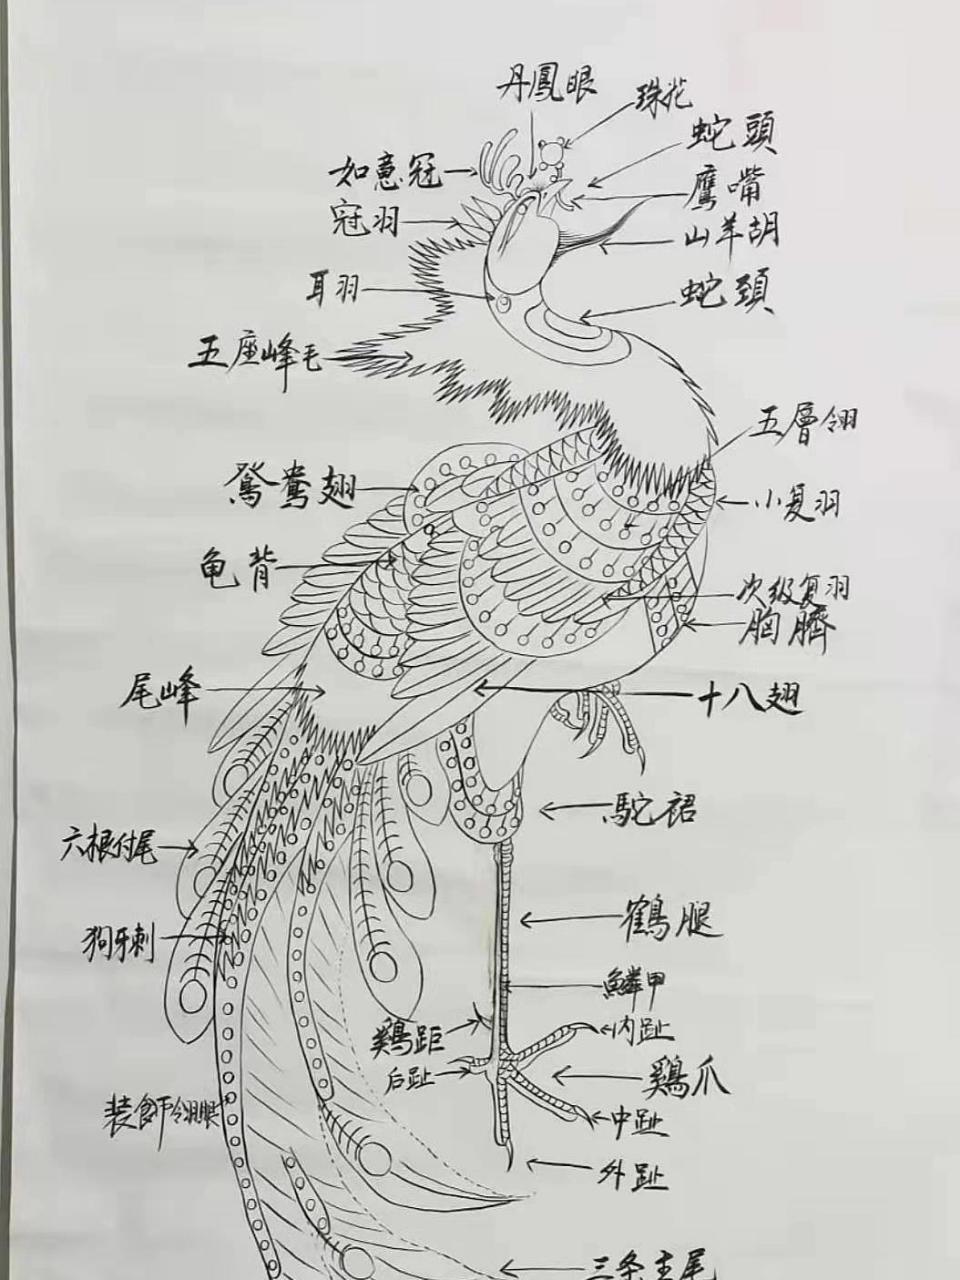 丹鳳眼
珠花
蛇頭
如意冠
鹰嘴
冠羽
山羊胡
耳羽
蛇頸
五座峰毛
五層翎
鴛鴦翅
小复羽
龟背
次级复羽
胸臍
尾峰
十八翅
駝裙
六根付尾
鶴腿
狗牙刺
鱗甲
内趾
鷄距
后趾
鷄爪
装飾翎眼
中趾
外趾
三条主尾